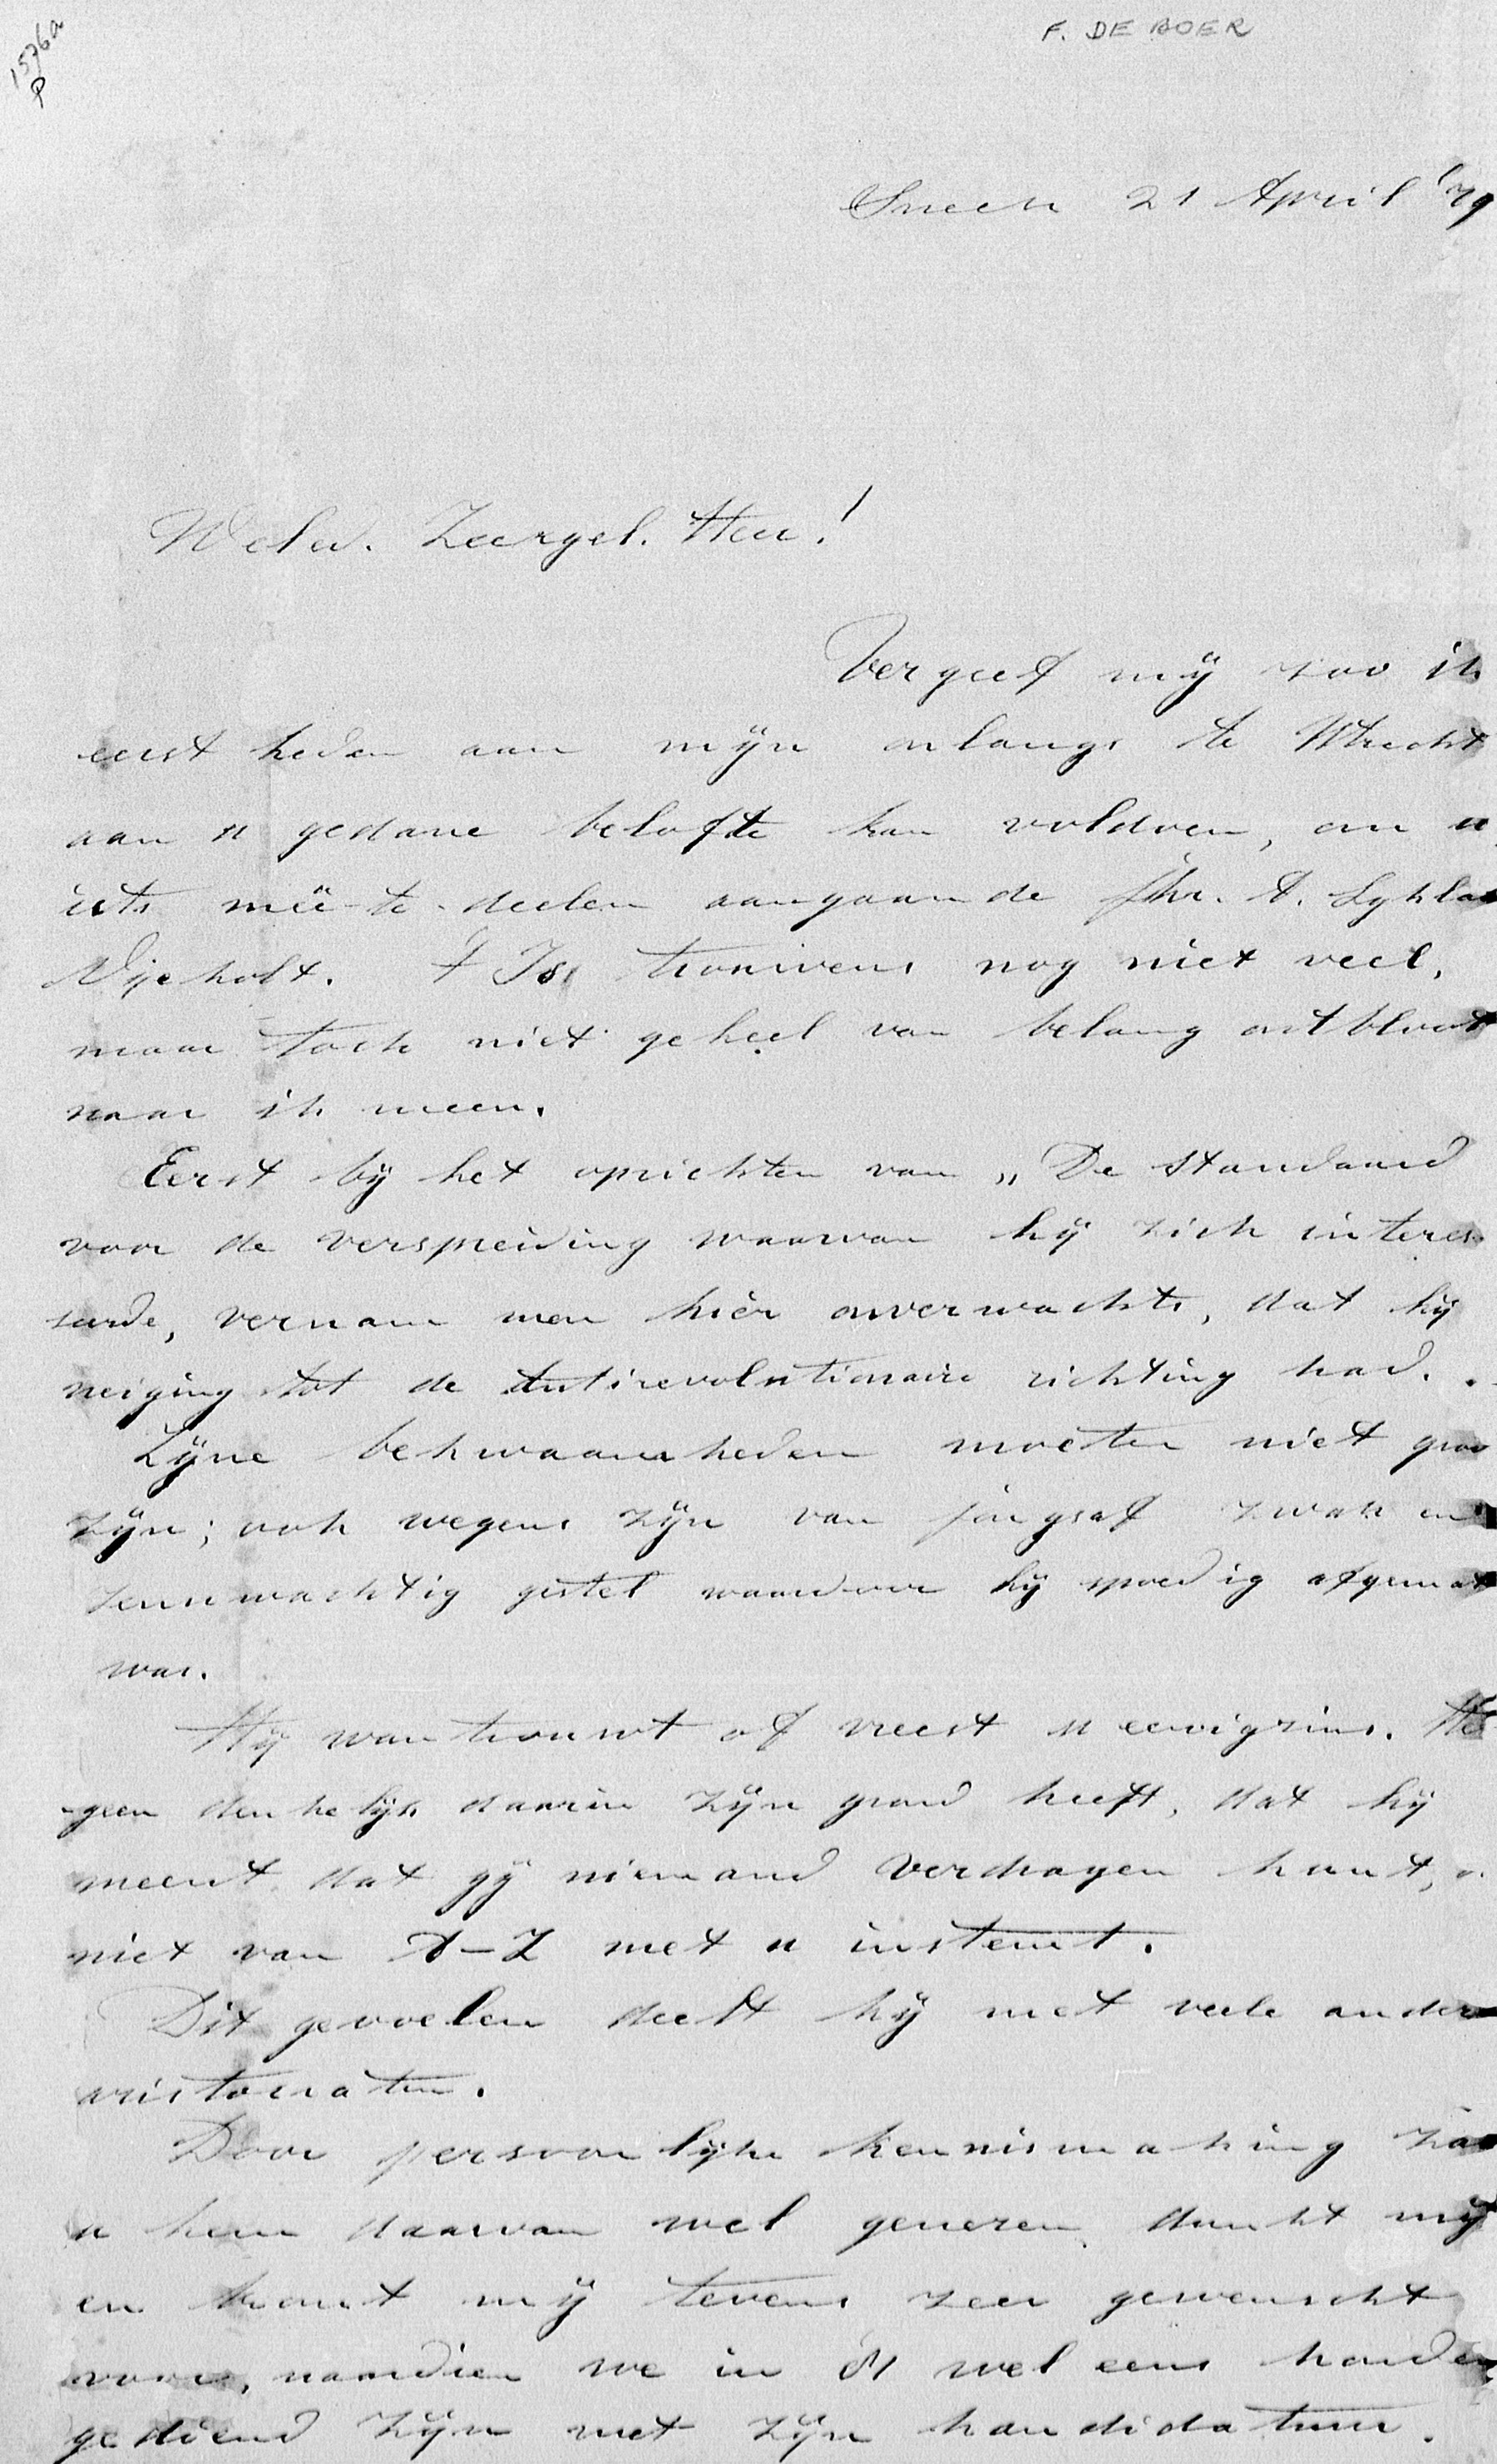 1576a
P
F. DE BOER
Sneek 21 April '79
WelEd. Zeergel. Heer!
Vergeef mij zoo ik
eerst heden aan mijn onlangs te Utrecht
aan u gedane belofte kan voldoen, om u
iets meê-te-deelen aangaande Jhr. A. Lycklama
Nijeholt. 't Is trouwens nog niet veel,
maar toch niet geheel van belang ontbloot
naar ik meen.
Eerst bij het oprichten van „De Standaard
voor de verspreiding waarvan hij zich interes
seerde, vernam men hier onverwachts, dat hij
neiging tot de Antirevolutionaire richting had.
Zijne bekwaamheden moeten niet groo
zijn; ook wegens zijn van jongsaf zwak en
zenuwachtig gestel waardoor hij spoedig afgemat
was.
Hij wantrouwt of vreest u eenigzins. Het
geen denkelijk daarin zijn grond heeft, dat hij
meent dat gij niemand verdragen kunt,
niet van A-Z met u instemt.
Dit gevoelen deelt hij met vele andere
aristocraten.
Door persoonlijke kennismaking zou
u hem daarvan wel genezen dunkt mij
en komt mij tevens zeer gewenscht
voor, naardien we in 81 wel eens konden
gediend zijn met zijn kandidatuur.